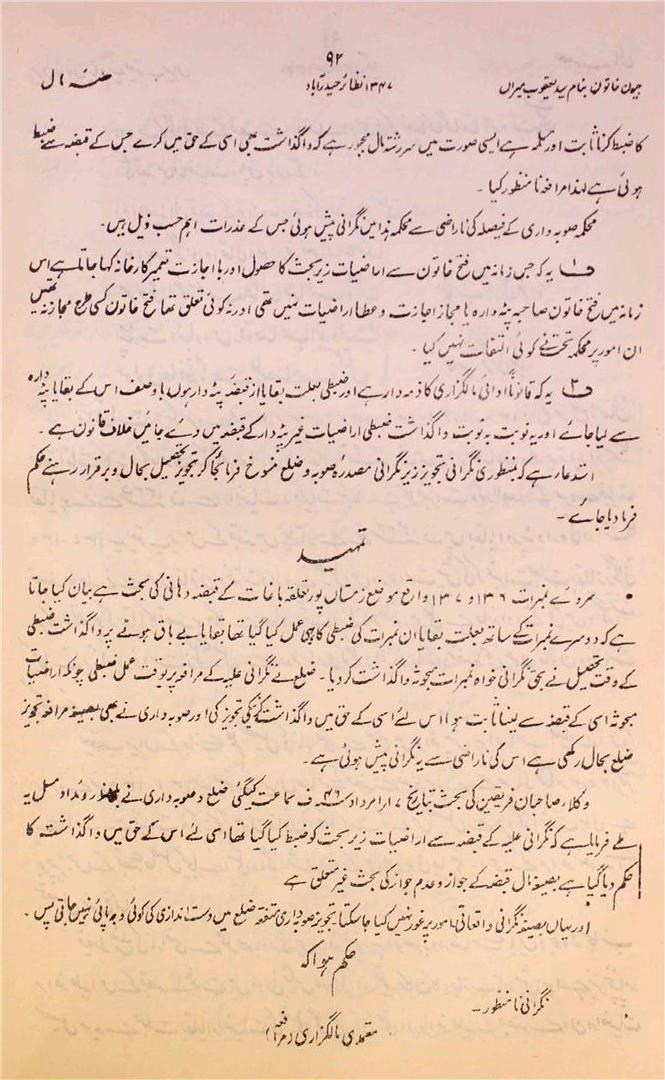 ۹۲
جیون خاتون بنام سید یعقوب میراں ۱۳۴۷ نظائر حیدرآباد صنہ مال
کا ضبط کرنا ثابت اور مسلمہ ہے ایسی صورت میں سررشتہ مال مجبور ہے کہ واگذاشت بھی اسی کے حق میں کرے جس کے قبضہ سے ضبط
ہوئی ہے لہذا مرافعہ نامنظور کیا ۔
محکمہ صوبہ داری کے فیصلہ کی ناراضی سے محکمہ ہذا میں نگرانی پیش ہوئی جس کے عذرات اہم حسب ذیل ہیں۔
ف۱ یہ کہ جس زمانہ میں فتح خاتون سے اراضیات زیر بحث کا حصول اور با اجازت تعمیر کارخانہ کہا جاتا ہے اس
زمانہ میں فتح خاتون صاحبہ پٹہ دارہ یا مجاز اجازت و عطا اراضیات نہیں تھی اور نہ کوئی تعلق تھا فتح خاتون کسی طرح مجاز نہ تھیں
ان امور پر محکمہ تحت نے کوئی التفات نہیں کیا ۔
ف۲ یہ کہ قانوناً ادائی مالگزاری کا ذمہ دار ہے اور ضبطی بعلت بقایا از قبضہ پٹہ دار ہوں با وصف اس کے بقایا پٹہ دارہ
سے لیا جائے اور یہ نوبت بہ نوبت واگذاشت ضبطی اراضیات غیر پٹہ دار کے قبضہ میں دے جائیں خلاف قانون ہے ۔
استدعا ہے کہ بمنظوری نگرانی تجویز زیر نگرانی مصدرہ صوبہ و ضلع منسوخ فرمائی جا کر تجویز تحصیل بحال و برقرار رہنے حکم
فرمادیا جائے ۔
تمہید
سروے نمبرات ۱۳۶ و ۱۳۷ واقع موضع زمستاں پور تعلقہ باغات کے قبضہ دہانی کی بحث ہے بیان کیا جاتا
ہے کہ دوسرے نمبرات کے ساتھ بعلت بقایا ان نمبرات کی ضبطی کا بھی عمل کیا گیا تھا بقایا بے باق ہونے پر واگذاشت ضبطی
کے وقت تحصیل نے بحق نگرانی خواہ نمبرات مبحوثہ واگذاشت کر دیا ۔ ضلع نے نگرانی علیہ کے مرافعہ پر بوقت عمل ضبطی چونکہ اراضیات
مبحوثہ اسی کے قبضہ سے لینا ثابت ہوا اس لئے اسی کے حق میں واگذاشت کرنیکی تجویز کی اور صوبہ داری نے بھی بصیغہ مرافعہ تجویز
ضلع بحال رکھی ہے اس کی ناراضی سے یہ نگرانی پیش ہوئی ہے ۔
وکلاء صاحبان فریقین کی بحث بتاریخ ۱۷ امرداد ۴۶ ف سماعت کیگئی ضلع و صوبہ داری نے بلحاظ روئداد مسل یہ
طے فرمایا ہے کہ نگرانی علیہ کے قبضہ سے اراضیات زیر بحث کو ضبط کیا گیا تھا اسی لئے اس کے حق میں واگذاشت کا
حکم دیا گیا ہے بصیغہ مال قبضہ کے جواز و عدم جواز کی بحث غیر متعلق ہے
اور یہاں بصیغہ نگرانی واقعاتی امور پر غور نہیں کیا جا سکتا تجویز صوبہ داری متفقہ ضلع میں دست اندازی کی کوئی وجہ پائی نہیں جاتی پس ۔
حکم ہوا کہ
نگرانی نامنظور ۔
معتمدی مالگزاری (مرافعہ)